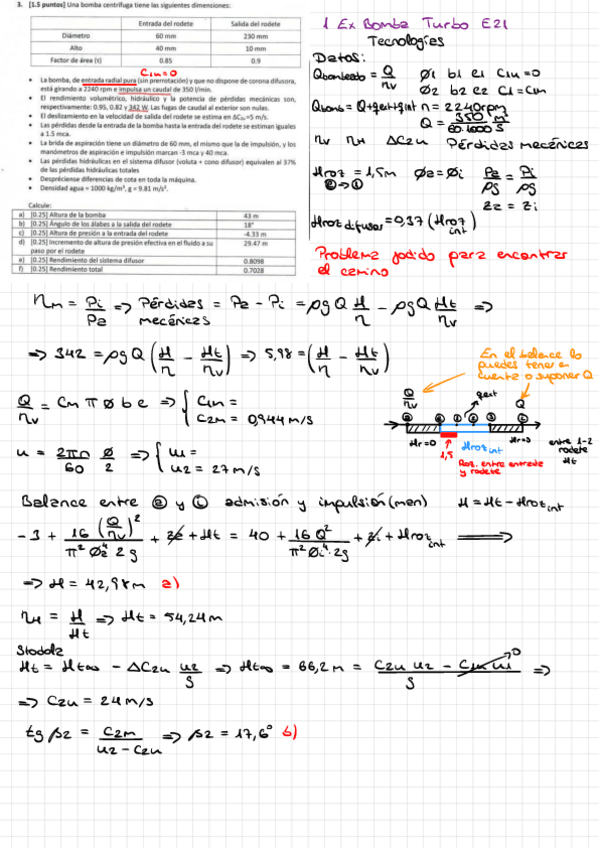 3. [1.5 puntos] Una bomba centrífuga tiene las siguientes dimensiones:
Entrada del rodete Salida del rodete
Diámetro 60 mm 230 mm
Alto 40 mm 10 mm
Factor de área (τ) 0.85 0.9
C1u=0
• La bomba, de entrada radial pura (sin prerrotación) y que no dispone de corona difusora, está girando a 2240 rpm e impulsa un caudal de 350 l/min.
• El rendimiento volumétrico, hidráulico y la potencia de pérdidas mecánicas son, respectivamente: 0.95, 0.82 y 342 W. Las fugas de caudal al exterior son nulas.
• El deslizamiento en la velocidad de salida del rodete se estima en ΔC2u=5 m/s.
• Las pérdidas desde la entrada de la bomba hasta la entrada del rodete se estiman iguales a 1.5 mca.
• La brida de aspiración tiene un diámetro de 60 mm, el mismo que la de impulsión, y los manómetros de aspiración e impulsión marcan -3 mca y 40 mca.
• Las pérdidas hidráulicas en el sistema difusor (voluta + cono difusor) equivalen al 37% de las pérdidas hidráulicas totales
• Despréciense diferencias de cota en toda la máquina.
• Densidad agua = 1000 kg/m³, g = 9.81 m/s².
Calcule:
a) [0.25] Altura de la bomba 43 m
b) [0.25] Ángulo de los álabes a la salida del rodete 18°
c) [0.25] Altura de presión a la entrada del rodete -4.33 m
d) [0.25] Incremento de altura de presión efectiva en el fluido a su paso por el rodete 29.47 m
e) [0.25] Rendimiento del sistema difusor 0.8098
f) [0.25] Rendimiento total 0.7028
1 Ex Bomba Turbo E21
Tecnologías
Datos:
Qbombeado = Q/ηv ∅1 b1 e1 C1u=0
∅2 b2 e2 C1=C1m
Qbomb = Q+qext+qint n = 2240rpm
Q = 350/60·1000 m³/s
ηv ηH ΔC2u Pérdidas mecánicas
Hroz = 1,5m ∅a=∅i Pa/ρg = Pi/ρg
za = zi
Hroz difusor=0,37 (Hroz int)
Problema jodido para encontrar
el camino
ηm = Pi/Pa => Pérdidas mecánicas = Pa - Pi = ρgQ H/η - ρgQ Ht/ηv =>
=> 342 = ρgQ (H/η - Ht/ηv) => 5,98 = (H/η - Ht/ηv)
En el balance lo
puedes tener en
cuenta o suponer Q
Q/ηv = Cm π ∅ b e => { C1m =
C2m = 0,944 m/s
Q/ηv qext Q
Hr=0 Hroz int Hr=0 entre 1-2
rodete
Ht
1,5
Roz. entre entrada
y rodete
u = 2πn/60 ∅/2 => { u1 =
u2 = 27 m/s
Balance entre ⓐ y ⓘ admisión y impulsión (man) H = Ht - Hroz int
-3 + 16 (Q/ηv)²/π² ∅a⁴ 2g + za + Ht = 40 + 16 Q²/π² ∅i⁴·2g + zi + Hroz int =>
=> H = 42,98m a)
ηH = H/Ht => Ht = 54,24m
Stodola
Ht = Ht∞ - ΔC2u u2/g => Ht∞ = 66,2m = C2u u2 - C1u u1/g 0 =>
=> C2u = 24 m/s
tg β2 = C2m/u2 - C2u => β2 = 17,6° b)